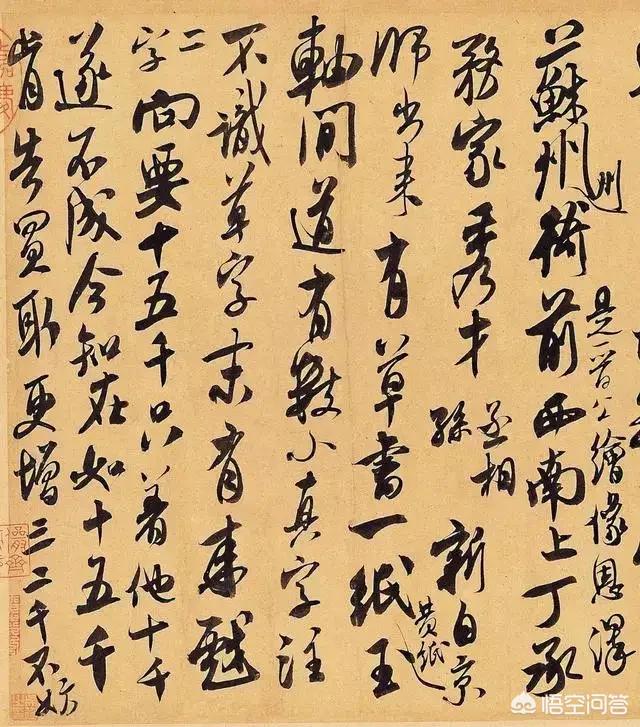 是晉公繪像恩澤
州
蘇州衙前西南上丁承
務家秀才丞相孫新自京
黃紙
師出来有草書一紙玉
軸間道有數小真字注
不識草字末有来戲
二字向要十五千只著他十千
遂不成今知在如十五千
肯告買取更增三二千不妨
悟空问答